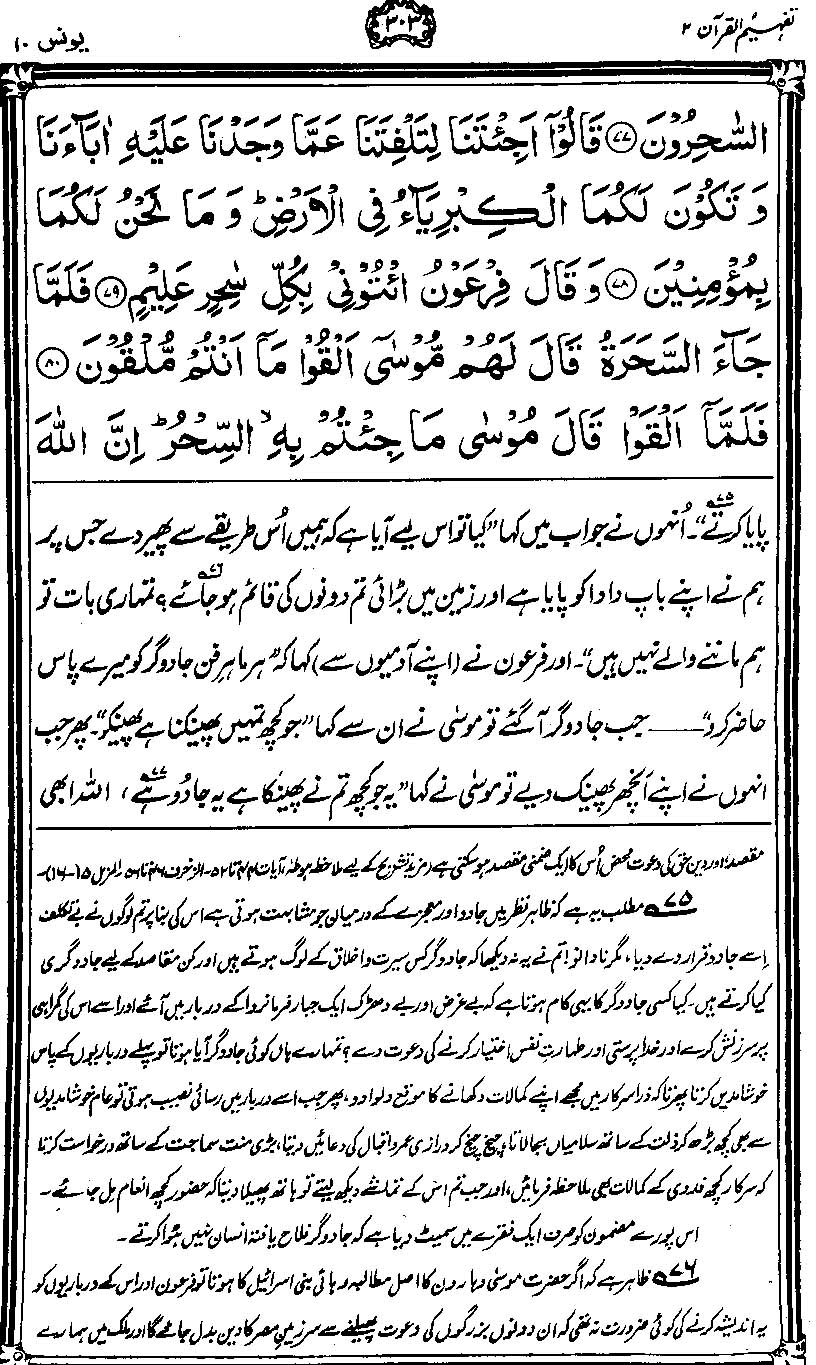 تفہیم القرآن ۲
۳۰۳
یونس ۱۰
السّٰحِرُوْنَ ﴿۷۷﴾ قَالُوْۤا اَجِئْتَنَا لِتَلْفِتَنَا عَمَّا وَجَدْنَا عَلَیْهِ اٰبَآءَنَا
وَ تَكُوْنَ لَكُمَا الْكِبْرِیَآءُ فِی الْاَرْضِ ؕ وَ مَا نَحْنُ لَكُمَا
بِمُؤْمِنِیْنَ ﴿۷۸﴾ وَ قَالَ فِرْعَوْنُ ائْتُوْنِیْ بِكُلِّ سٰحِرٍ عَلِیْمٍ ﴿۷۹﴾ فَلَمَّا
جَآءَ السَّحَرَةُ قَالَ لَهُمْ مُّوْسٰۤی اَلْقُوْا مَاۤ اَنْتُمْ مُّلْقُوْنَ ﴿۸۰﴾
فَلَمَّاۤ اَلْقَوْا قَالَ مُوْسٰی مَا جِئْتُمْ بِهِ ۙ السِّحْرُ ؕ اِنَّ اللّٰهَ
پایا کرتے۷۵“۔ اُنہوں نے جواب میں کہا ”کیا تو اس لیے آیا ہے کہ ہمیں اُس طریقے سے پھیر دے جس پر
ہم نے اپنے باپ دادا کو پایا ہے اور زمین میں بڑائی تم دونوں کی قائم ہو جائے۷۶؟ تمہاری بات تو
ہم ماننے والے نہیں ہیں“۔ اور فرعون نے (اپنے آدمیوں سے) کہا کہ ”ہر ماہر فن جادوگر کو میرے پاس
حاضر کرو“ ــــــ جب جادوگر آ گئے تو موسیٰ نے ان سے کہا ”جو کچھ تمہیں پھینکنا ہے پھینکو“۔ پھر جب
انہوں نے اپنے اَنچھر پھینک دیے تو موسیٰ نے کہا ”یہ جو کچھ تم نے پھینکا ہے یہ جادُو ہے۷۷، اللہ ابھی
مقصد، اور دین حق کی دعوت محض اُس کا ایک ضمنی مقصد ہو سکتی ہے (مزید تشریح کے لیے ملاحظہ ہو طٰہٰ، آیات ۴۴ تا ۵۲۔ الزخرف، ۴۶ تا ۵۶۔ المزمل ۱۵-۱۶)۔
۷۵ مطلب یہ ہے کہ ظاہر نظر میں جادو اور معجزے کے درمیان جو مشابہت ہوتی ہے اس کی بنا پر تم لوگوں نے بے تکلف
اِسے جادو قرار دے دیا، مگر نادانو! تم نے یہ نہ دیکھا کہ جادوگر کس سیرت و اخلاق کے لوگ ہوتے ہیں اور کن مقاصد کے لیے جادوگری
کیا کرتے ہیں۔ کیا کسی جادوگر کا یہی کام ہوتا ہے کہ بے غرض اور بے دھڑک ایک جبار فرمانروا کے دربار میں آئے اور اسے اس کی گمراہی
پر سرزنش کرے اور خدا پرستی اور طہارتِ نفس اختیار کرنے کی دعوت دے؟ تمہارے ہاں کوئی جادوگر آیا ہوتا تو پہلے درباریوں کے پاس
خوشامدیں کرتا پھرتا کہ ذرا سرکار میں مجھے اپنے کمالات دکھانے کا موقع دلوا دو، پھر جب اسے دربار میں رسائی نصیب ہوتی تو عام خوشامدیوں
سے بھی کچھ بڑھ کر ذلت کے ساتھ سلامیاں بجا لاتا، چیخ چیخ کر درازی عمر و اقبال کی دعائیں دیتا، بڑی منت سماجت کے ساتھ درخواست کرتا
کہ سرکار کچھ فدوی کے کمالات بھی ملاحظہ فرمائیں، اور جب تم اس کے تماشے دیکھ لیتے تو ہاتھ پھیلا دیتا کہ حضور کچھ انعام مل جائے۔
اس پورے مضمون کو صرف ایک فقرے میں سمیٹ دیا ہے کہ جادوگر فلاح یافتہ انسان نہیں ہوا کرتے۔
۷۶ ظاہر ہے کہ اگر حضرت موسیٰ و ہارون کا اصل مطالبہ رہائی بنی اسرائیل کا ہوتا تو فرعون اور اس کے درباریوں کو
یہ اندیشہ کرنے کی کوئی ضرورت نہ تھی کہ ان دونوں بزرگوں کی دعوت پھیلنے سے سرزمینِ مصر کا دین بدل جائے گا اور ملک میں ہمارے